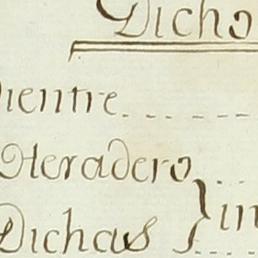 Dicho
Vientre
Heradero
Dichas } in